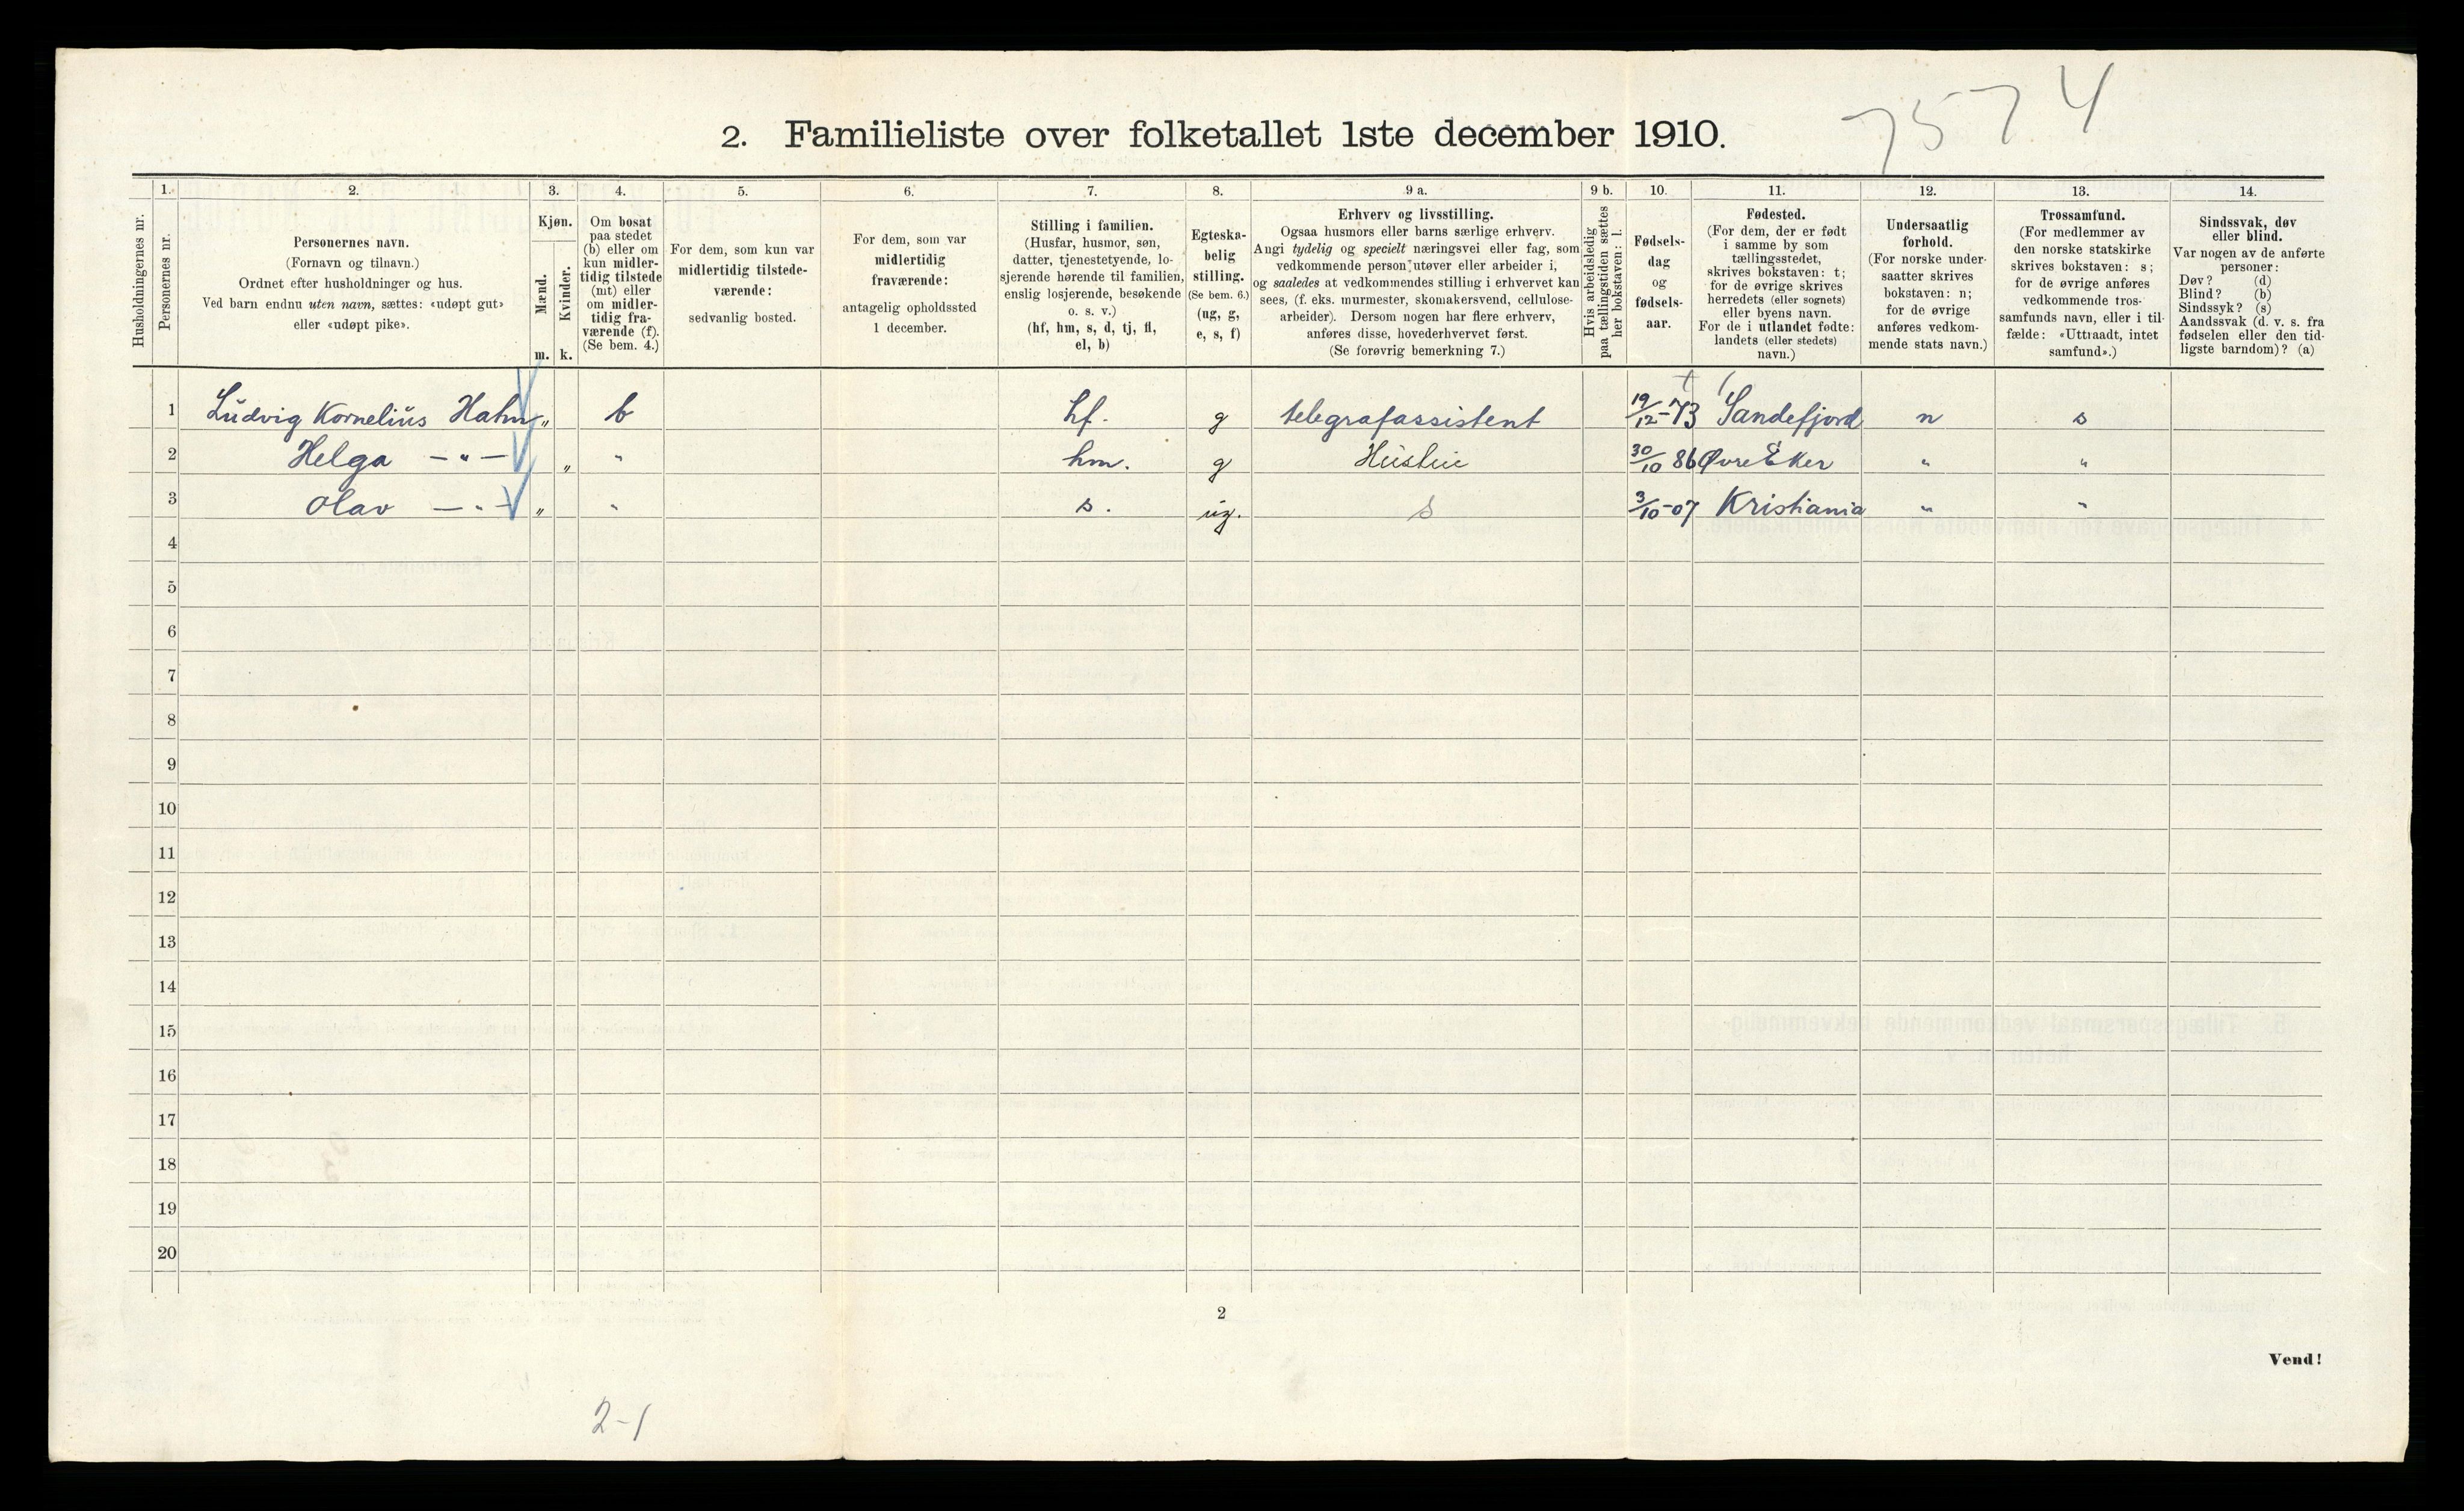 7574
2. Familieliste over folketallet 1ste december 1910.
Husholdningernes nr.
1. Personernes nr.
2. Personernes navn.
(Fornavn og tilnavn.)
Ordnet efter husholdninger og hus.
Ved barn endnu uten navn, sættes: «udøpt gut»
eller «udøpt pike».
3. Kjøn.
Mænd. Kvinder.
m. k.
4. Om bosat
paa stedet
(b) eller om
kun midler-
tidig tilstede
(mt) eller
om midler-
tidig fra-
værende (f).
(Se bem. 4.)
5. For dem, som kun var
midlertidig tilstede-
værende:
sedvanlig bosted.
6. For dem, som var
midlertidig
fraværende:
antagelig opholdssted
1 december.
7. Stilling i familien.
(Husfar, husmor, søn,
datter, tjenestetyende, lo-
sjerende hørende til familien,
enslig losjerende, besøkende
o. s. v.)
(hf, hm, s, d, tj, fl,
el, b)
8. Egteska-
belig
stilling.
(Se bem. 6.)
(ug, g,
e, s, f)
9 a. Erhverv og livsstilling.
Ogsaa husmors eller barns særlige erhverv.
Angi tydelig og specielt næringsvei eller fag, som
vedkommende person utøver eller arbeider i,
og saaledes at vedkommendes stilling i erhvervet kan
sees, (f. eks. murmester, skomakersvend, cellulose-
arbeider). Dersom nogen har flere erhverv,
anføres disse, hovederhvervet først.
(Se forøvrig bemerkning 7.)
9 b. Hvis arbeidsledig
paa tællingstiden sættes
her bokstaven: l.
10. Fødsels-
dag
og
fødsels-
aar.
11. Fødested.
(For dem, der er født
i samme by som
tællingsstedet,
skrives bokstaven: t;
for de øvrige skrives
herredets (eller sognets)
eller byens navn.
For de i utlandet fødte:
landets (eller stedets)
navn.)
12. Undersaatlig
forhold.
(For norske under-
saatter skrives
bokstaven: n;
for de øvrige
anføres vedkom-
mende stats navn.)
13. Trossamfund.
(For medlemmer av
den norske statskirke
skrives bokstaven: s;
for de øvrige anføres
vedkommende tros-
samfunds navn, eller i til-
fælde: «Uttraadt, intet
samfund».)
14. Sindssvak, døv
eller blind.
Var nogen av de anførte
personer:
Døv? (d)
Blind? (b)
Sindssyk? (s)
Aandssvak (d. v. s. fra
fødselen eller den tid-
ligste barndom)? (a)
1 Ludvig Kornelius Hahn „ b hf. g telegrafassistent 19/12-73 Sandefjord n s
2 Helga —„— „ „ hm. g Hustru 30/10 86 Øvre Eker „ „
3 Olav —„— „ „ s. ug. s 3/10-07 Kristiania „ „
4
5
6
7
8
9
10
11
12
13
14
15
16
17
18
19
20
2
Vend!
2-1